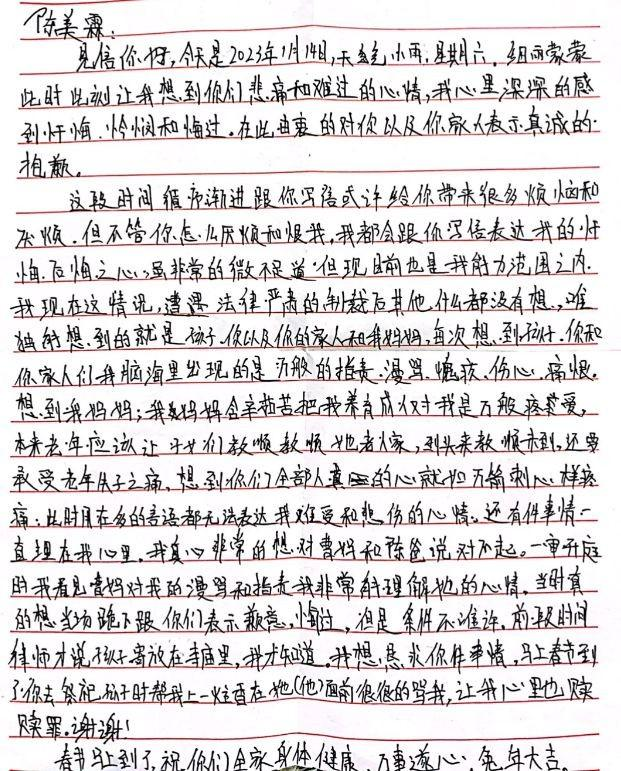 陈美霖:
见信你好,今天是2023年1月14日,天气小雨,星期六。细雨蒙蒙
此时此刻让我想到你们悲痛和难过的心情,我心里深深的感
到忏悔、怜悯和悔过。在此由衷的对你以及你家人表示真诚的
抱歉。
这段时间循序渐进跟你写信或许给你带来很多烦恼和
厌烦。但不管你怎么厌烦和恨我,我都会跟你写信表达我的忏
悔、后悔之心,虽非常的微不足道,但现目前也是我能力范围之内。
我现在这情况,遭遇法律严肃的制裁后其他什么都没有想,唯
独能想到的就是孩子、你以及你的家人和我妈妈,每次想到孩子、你和
你家人们我脑海里出现的是万般的指责、漫骂、愤孩、伤心、痛恨。
想到我妈妈;我妈妈含辛茹苦把我养育成仅才我是万般疼爱,
本来老年应该让子女们教顺教顺她老人家,到头来教顺未到,还要
承受老年失子之痛。想到你们全部人真的心就如万箭刺心一样疼
痛;此时用在多的言语都无法表达我难受和悲伤的心情。还有件事情一
直埋在我心里。我真心非常的想对曹妈和陈爸说对不起。一审开庭
时我看见曹妈对我的漫骂和指责我非常能理解她的心情。当时真
的想当场跪下跟你们表示歉意,悔过,但是条件不准许。前段时间
律师才说孩子寄放在寺庙里,我才知道。我想恳求你件事情,马上春节到
了你去祭祀孩子时帮我上一炷香在她(他)面前很很的骂我,让我心里也赎
赎罪。谢谢!
春节马上到了,祝你们全家身体健康,万事遂心,兔年大吉。